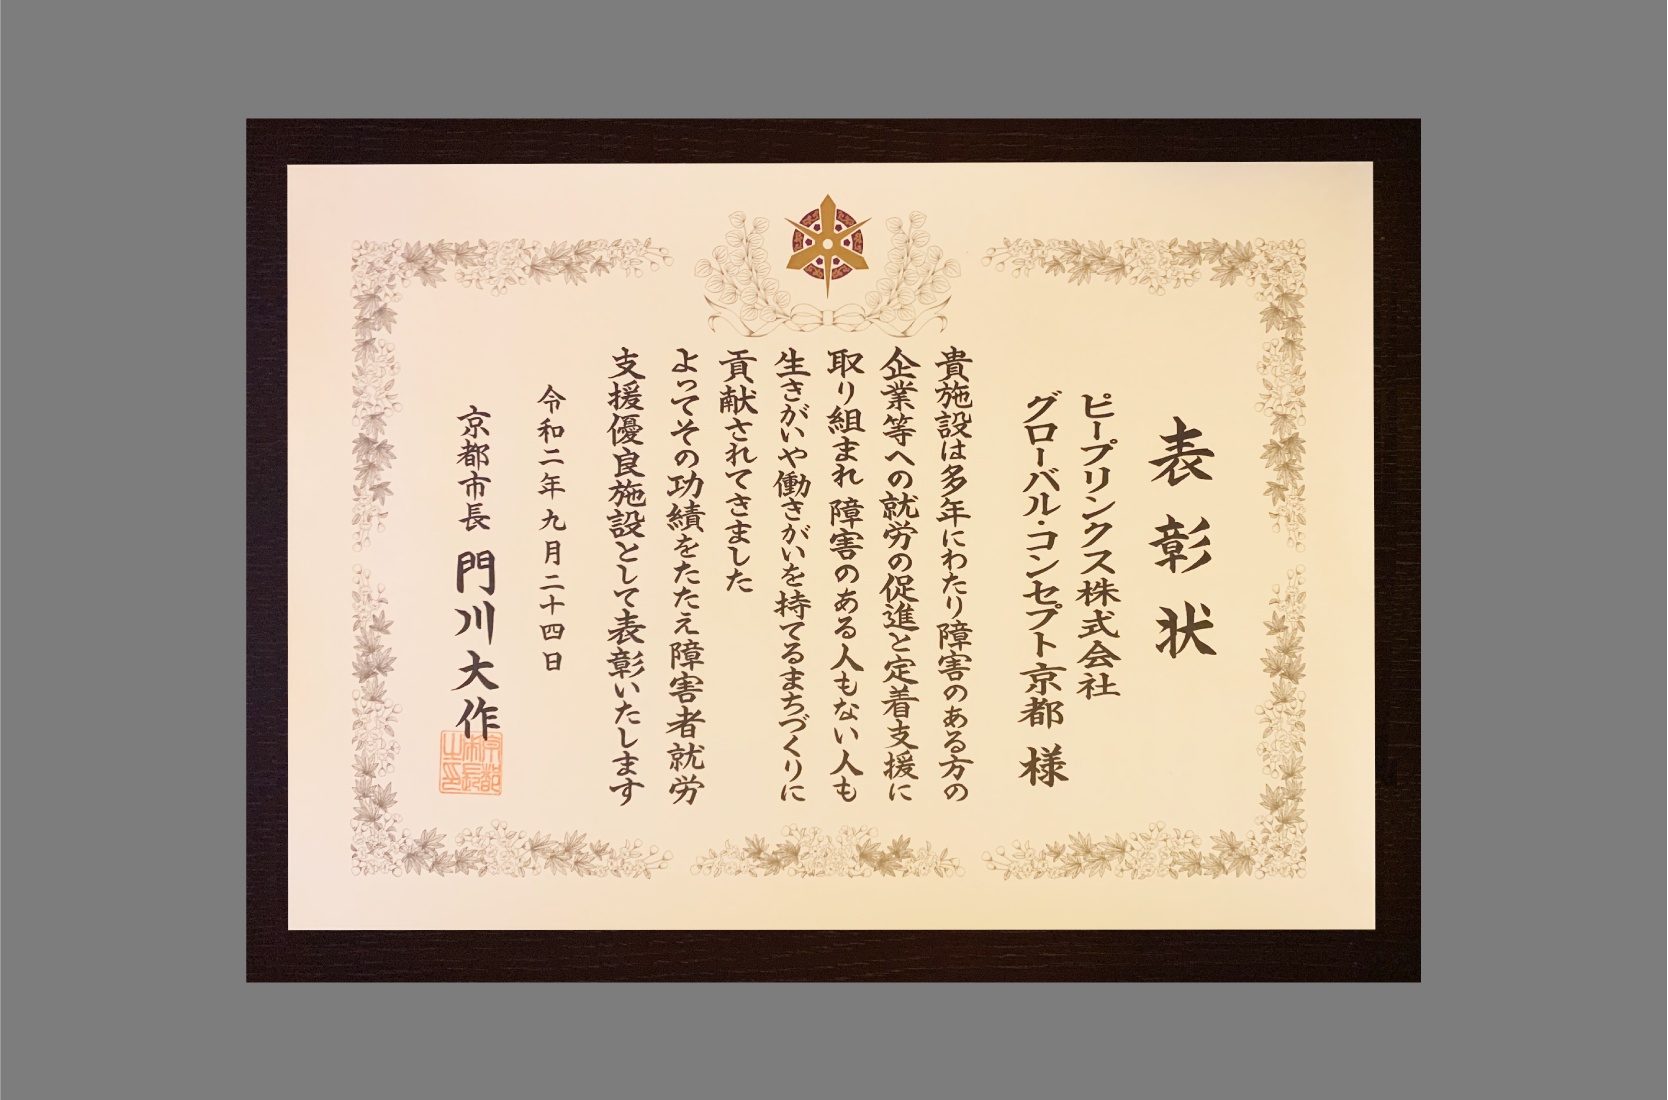 表彰状
ピープリンクス株式会社
グローバル・コンセプト京都 様
貴施設は多年にわたり障害のある方の
企業等への就労の促進と定着支援に
取り組まれ 障害のある人もない人も
生きがいや働きがいを持てるまちづくりに
貢献されてきました
よってその功績をたたえ障害者就労
支援優良施設として表彰いたします
令和二年九月二十四日
京都市長 門川大作
京都市長之印